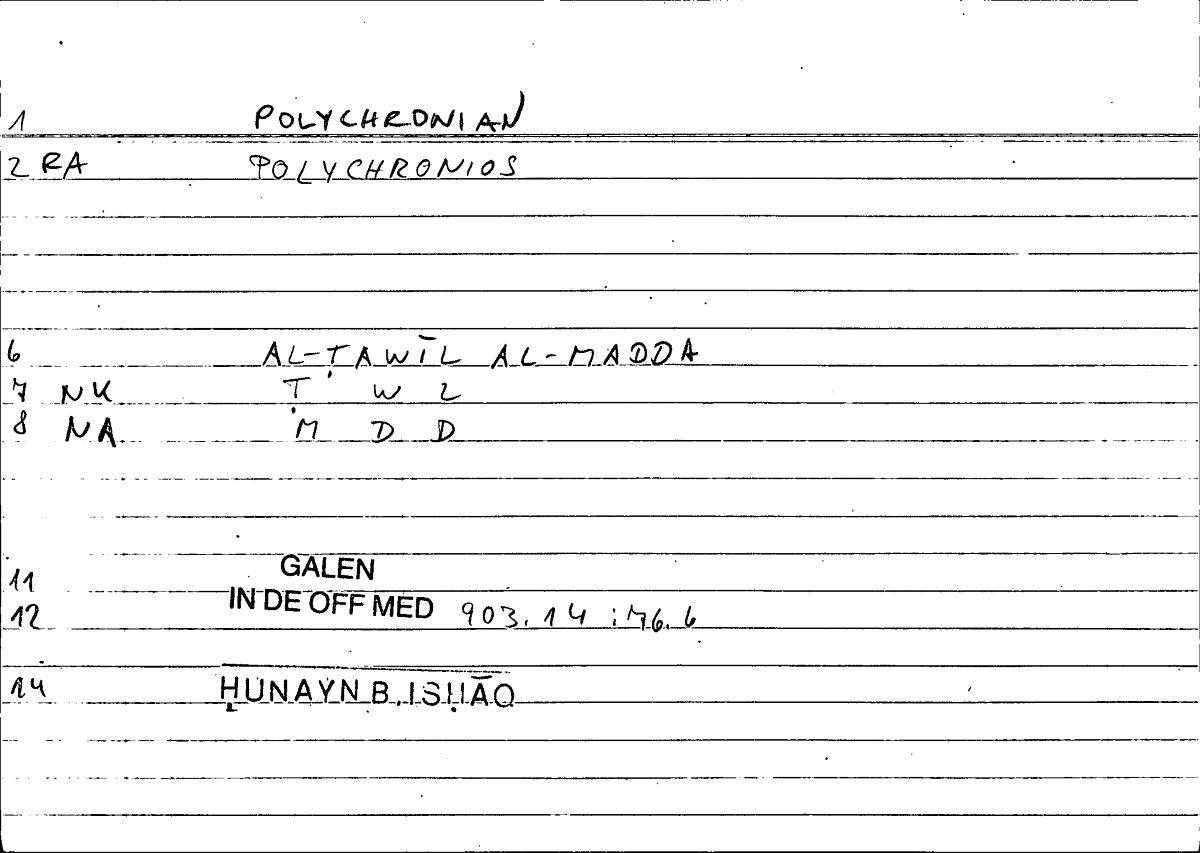 1 POLYCHRONIAN
2 RA POLYCHRONIOS
6 AL-ṬAWĪL AL-MADDA
7 NK Ṭ W L
8 NA M D D
11 GALEN
12 IN DE OFF MED 903.14 : 76.6
14 ḤUNAYN B. ISḤĀQ